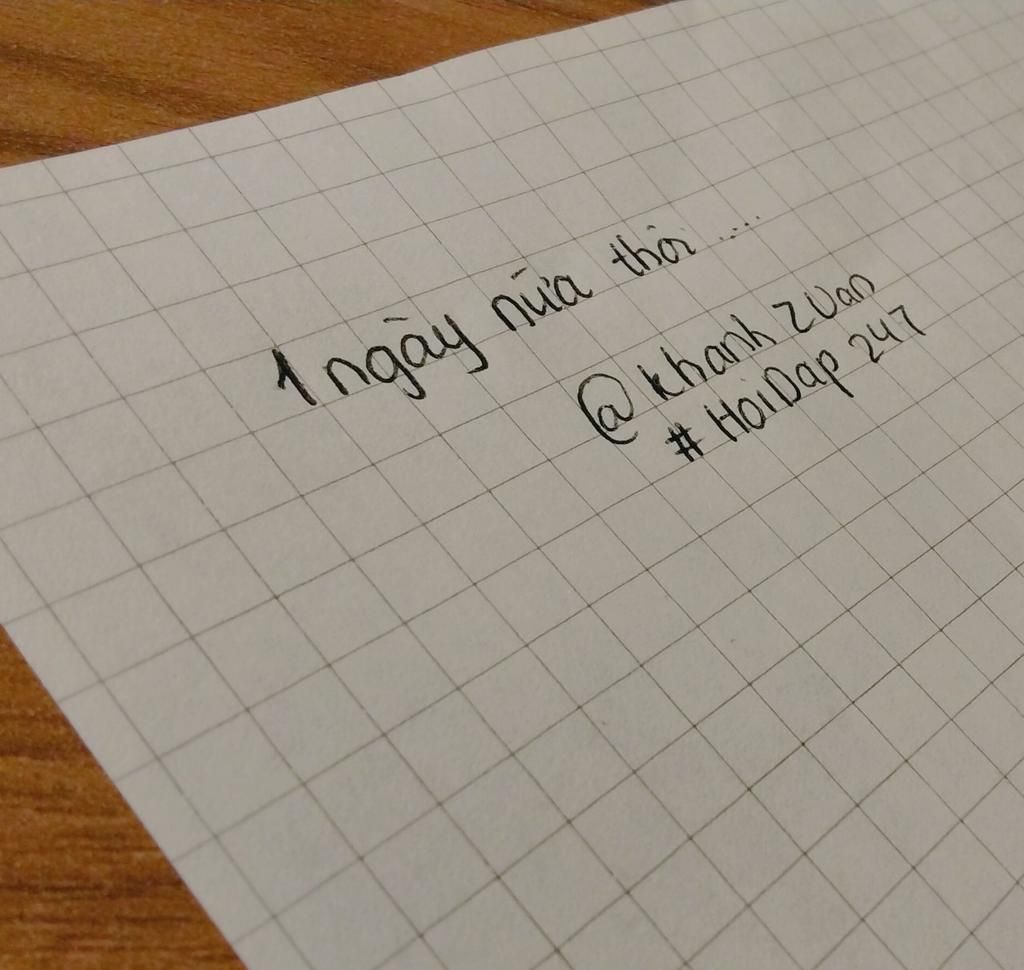 1 ngày nữa thôi .....
@khanh zuan
#HoiDap 247